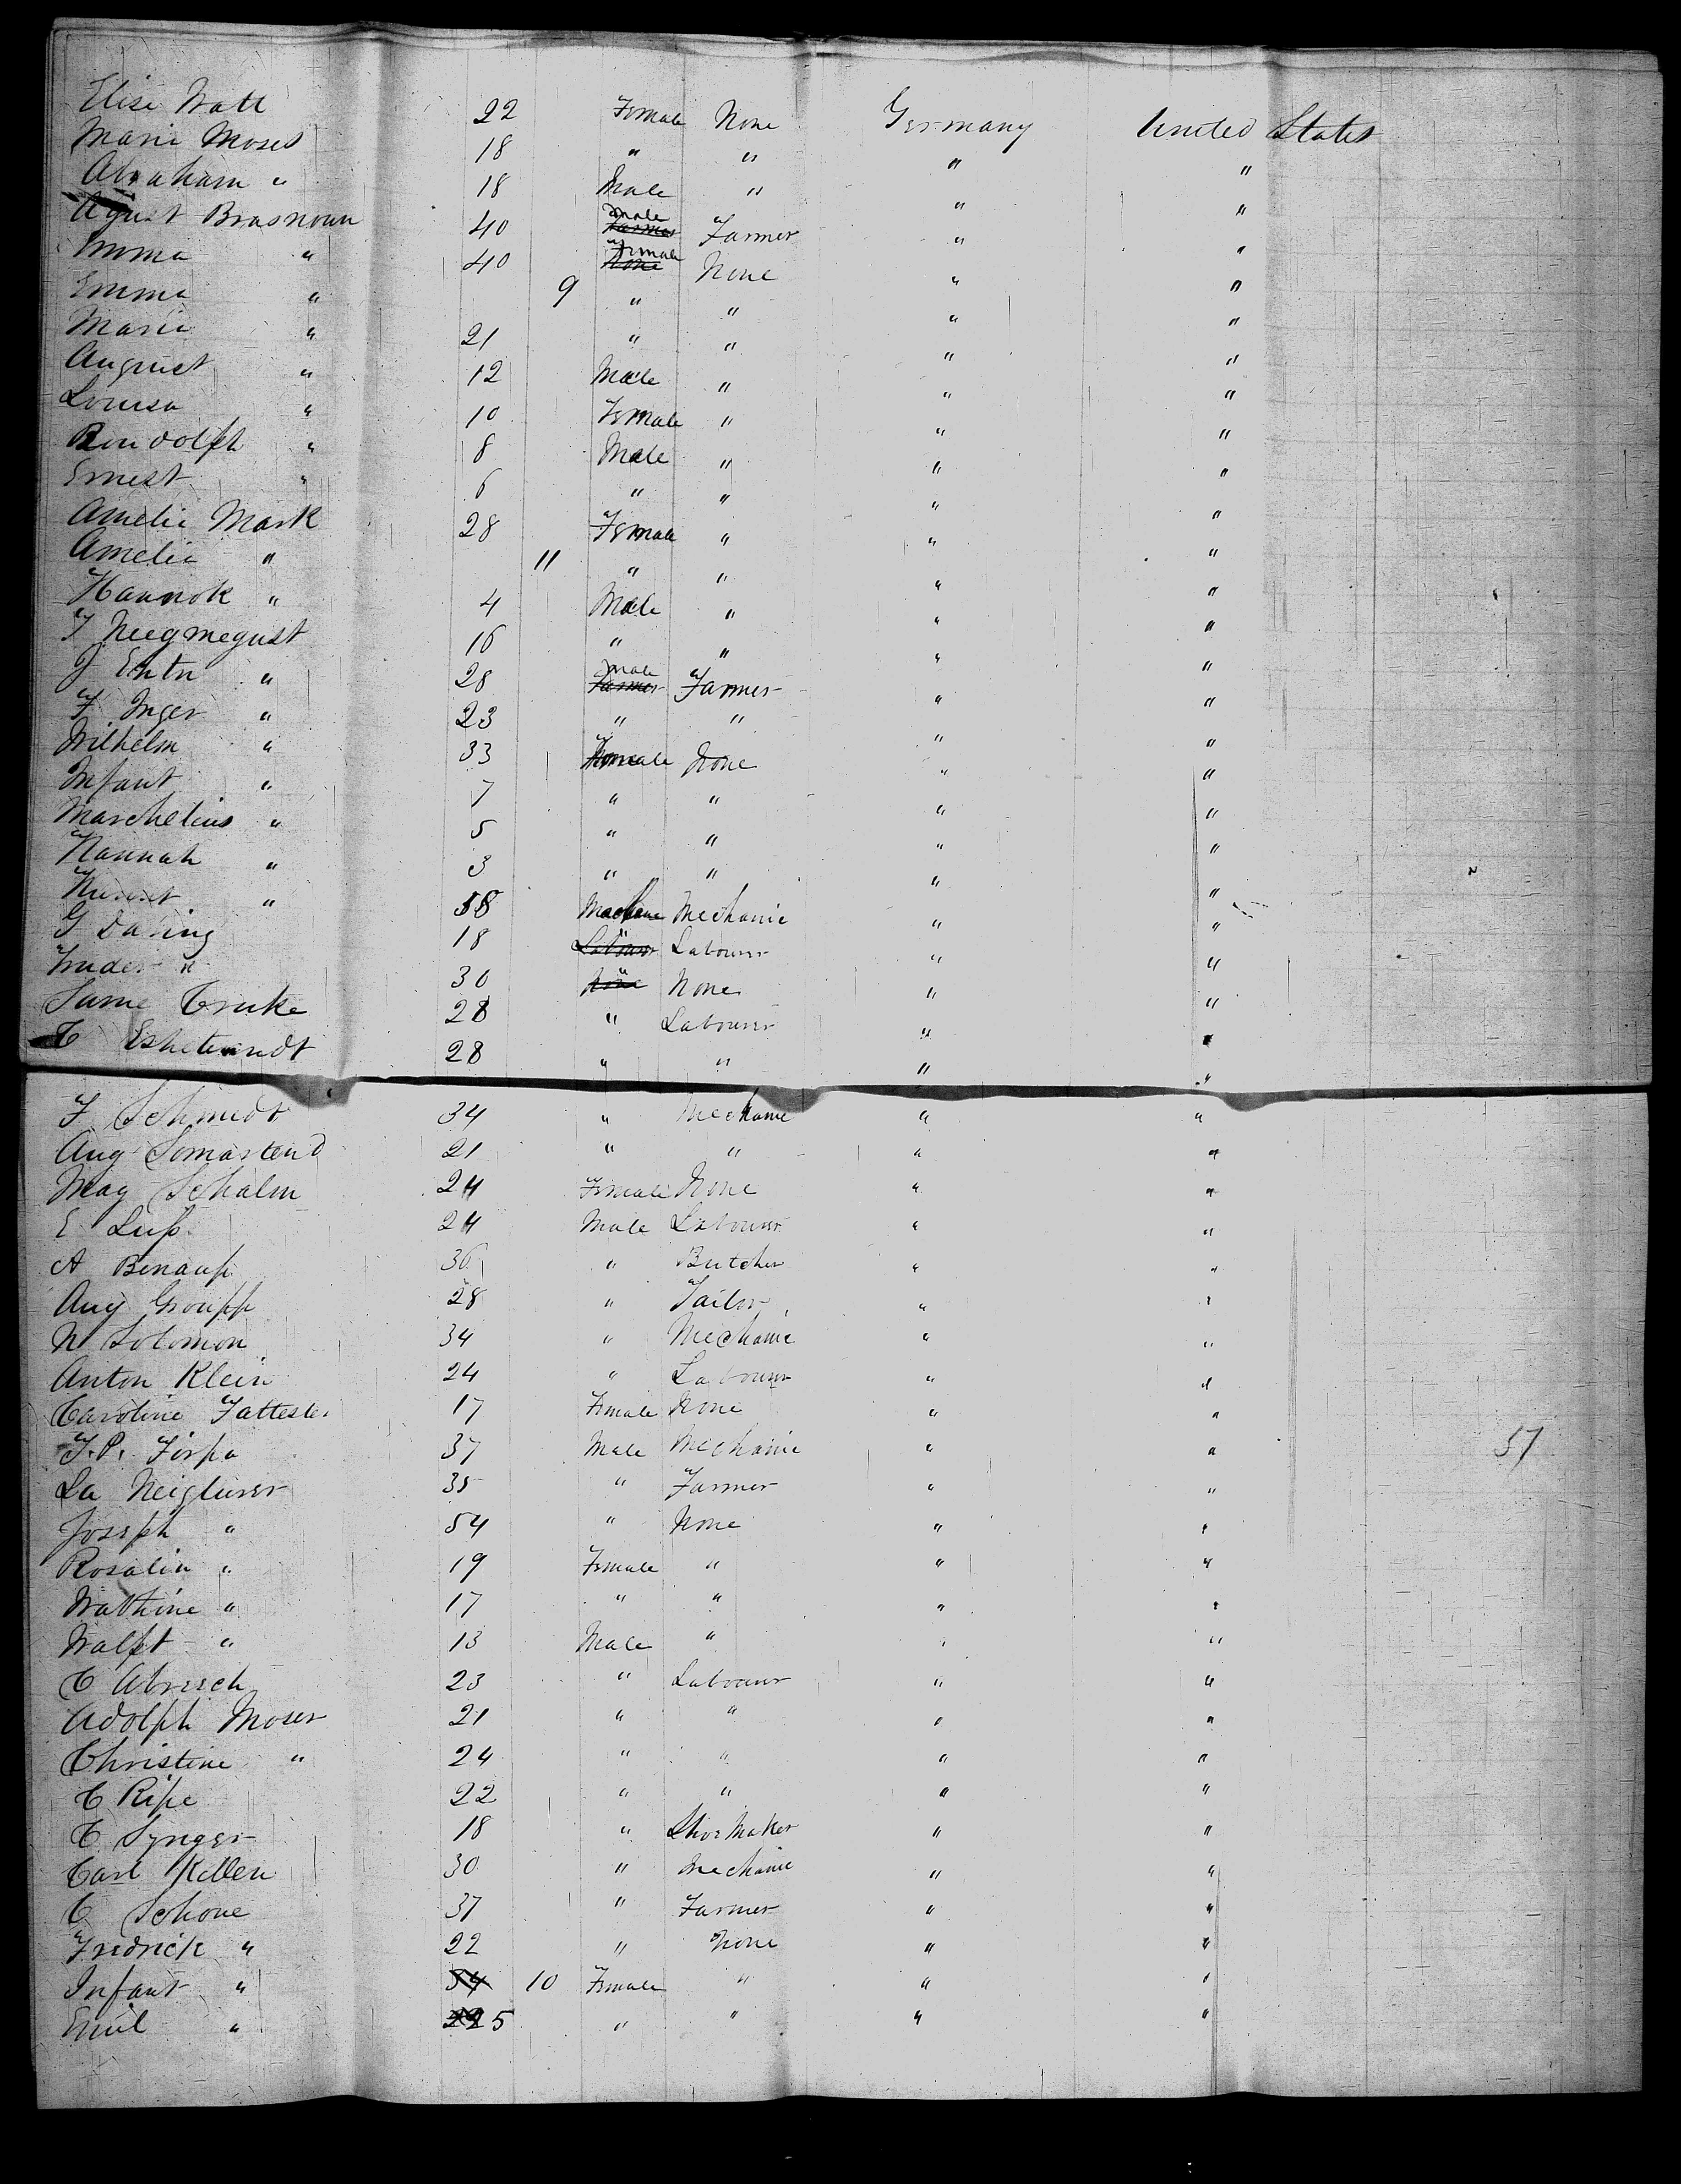 Elise Watt 22 Female None Germany United States
Marie Moses 18 " " " "
Abraham " 18 Male " " "
August Brasnoun 40 Male Farmer " "
Emma " 40 Female None " "
Emma " 9 " " " "
Marie " 21 " " " "
August " 12 Male " " "
Louisa " 10 Female " " "
Roudolph " 8 Male " " "
Ernest " 6 " " " "
Amelie Mark 28 Female " " "
Amelia " 11 " " " "
Hannok " 4 Male " " "
F Neegmegust 16 " " " "
J Entn " 28 Male Farmer " "
F Inger " 23 " " " "
Wilhelm " 33 Female None " "
Infant " 7 " " " "
Marchelius " 5 " " " "
Hannah " 3 " " " "
" 58 Mechanic " "
G Daring 18 " Labourer " "
" 30 " None " "
Truke 28 " Labourer " "
C 28 " " " "
F. Schmidt 34 " Mechanic " "
Aug Somastend 21 " " " "
May Schalm 24 Female None " "
E Lup 24 Male Labourer " "
A Benaup 36 " Butcher " "
Aug Groupp 28 " Tailor " "
N Solomon 34 " Mechanic " "
Anton Klein 24 " Labourer " "
Caroline Fattester 17 Female None " "
F. P. Firpa 37 Male Mechanic " " 57
La Neiglurer 35 " Farmer " "
Joseph " 54 " None " "
Rosalin " 19 Female " " "
Wathine " 17 " " " "
Walft " 13 Male " " "
C Abresch 23 " Labourer " "
Adolph Moser 21 " " " "
Christine " 24 " " " "
C Ripe 22 " " " "
C Synger 18 " Shoe Maker " "
Carl Killen 30 " Mechanic " "
C Schone 37 " Farmer " "
Fredrick " 22 " None " "
Infant " 10 Female " " "
Emil " 5 " " " "